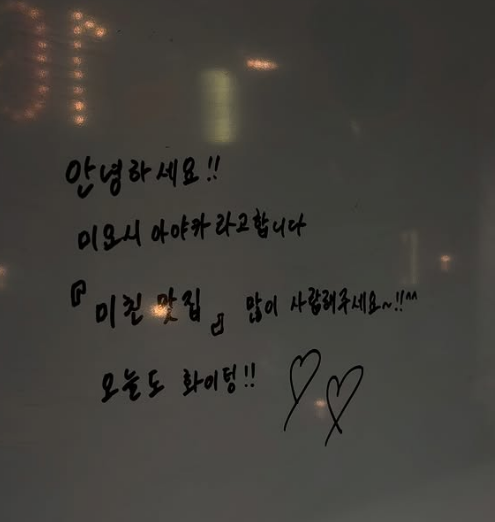 안녕하세요!!
미요시 아야카라고합니다
『미친 맛집』 많이 사랑해주세요~!!^^
오늘도 화이팅!!